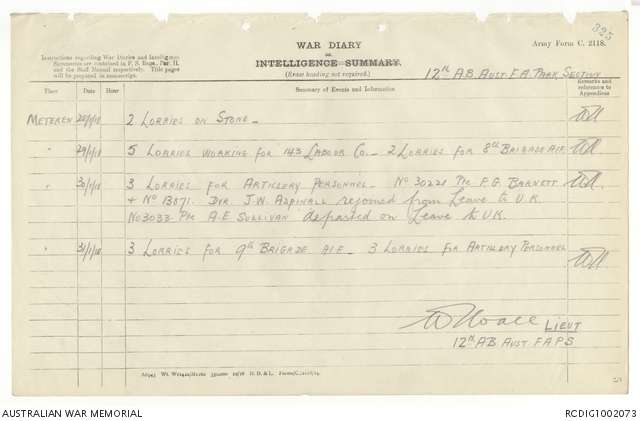 325
WAR DIARY
OR
INTELLIGENCE SUMMARY.
(Erase heading not required.)
Army Form C. 2118.
Instructions regarding War Diaries and Intelligence
Summaries are contained in F. S. Regs., Part II.
and the Staff Manual respectively. Title pages
will be prepared in manuscript.
12TH A.B. AUST. F.A. PARK SECTION
Place Date Hour Summary of Events and Information Remarks and references to Appendices
METEREN 28/1/18 2 LORRIES ON STONE-
" 29/1/18 5 LORRIES WORKING FOR 143 LABOUR CO.- 2 LORRIES FOR 8th BRIGADE AIF
" 30/1/18 3 LORRIES FOR ARTILLERY PERSONNEL. No 30221 Pte F.G. BARNETT
+ No 13871. DVR J.W. ASPINALL rejoined from Leave to U.K.
No3033 Pte A.E SULLIVAN departed on Leave to U.K.
" 31/1/18 3 LORRIES FOR 9th BRIGADE AIF- 3 LORRIES FOR ARTILLERY PERSONNEL
LIEUT
12TH AB. AUST. F A P S
AUSTRALIAN WAR MEMORIAL
RCDIG1002073